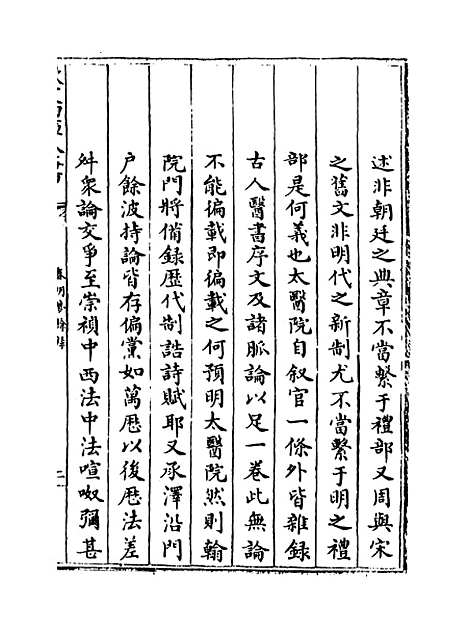 述非朝廷之典章不當繫于禮部又周與宋
之舊文非明代之新制尤不當繫于明之禮
部是何義也太醫院自叙官一條外皆雜録
古人醫書序文及諸脈論以足一卷此無論
不能徧載即徧載之何預明太醫院然則翰
院門將備録歷代制誥詩賦耶又承澤沿門
户餘波持論皆存偏黨如萬厯以後厯法差
舛衆論交爭至崇禎中西法中法喧呶彌甚
春明夢餘録
二